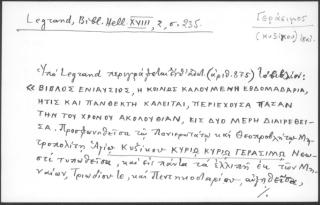 Legrand, Bibl. Hell. XVIII, 2, σ. 235.
Γεράσιμος
(Κυζίκου)
Ὑπὸ Legrand περιγράφεται (ἀριθ. 875)
«ΒΙΒΛΟΣ ΕΝΙΑΥΣΙΟΣ, Η ΚΟΙΝΩΣ ΚΑΛΟΥΜΕΝΗ ΕΒΔΟΜΑΔΑΡΙΑ,
ΗΤΙΣ ΚΑΙ ΠΑΝΘΕΚΤΗ ΚΑΛΕΙΤΑΙ, ΠΕΡΙΕΧΟΥΣΑ ΠΑΣΑΝ
ΤΗΝ ΤΟΥ ΧΡΟΝΟΥ ΑΚΟΛΟΥΘΙΑΝ, ΕΙΣ ΔΥΟ ΜΕΡΗ ΔΙΑΙΡΕΘΕΙ-
ΣΑ. Προσφωνηθεῖσα τῷ Πανιερωτάτῳ καὶ Θεοπροβλήτῳ Μη-
τροπολίτῃ Ἁγίῳ Κυζίκου ΚΥΡΙΩ ΚΥΡΙΩ ΓΕΡΑΣΙΜΩ Νεω-
στὶ τυπωθεῖσα, καὶ εἰς πάντα τὰ ἐλλιπῆ ἐκ τῶν Μη-
ναίων, Τριωδίου τε, καὶ Πεντηκοσταρίου, αὐξηθεῖσα,